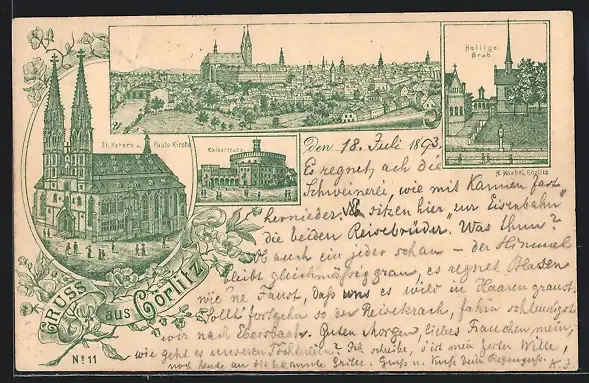 Heilige
Grab.
St. Peters u. Pauls-Kirche
Kaisertrutz
Den 18. Juli 1893.
Es regnet, ach die
Schweinerei, wie mit Kannen fast
hernieder, sitzen hier zur Eisenbahn
die beiden Reisebrüder. Was thun?
auch ein jeder schau - der Himmel
bleibt gleichmäßig grau, es regnet Blasen
wie 'ne Faust, daß uns es wild in Haaren graust.
fortgehn so der Reisekrach, fahrn schleunigst
wir nach Ebersbach. Guten Morgen, liebes Frauchen mein,
wie geht es unseren Töchterlein? Ich schreibe, 's ist mein fester Wille,
noch heute an die bekannte Grille. Gruß u. Kuß dem
K. J
GRUSS
aus Görlitz
No 11